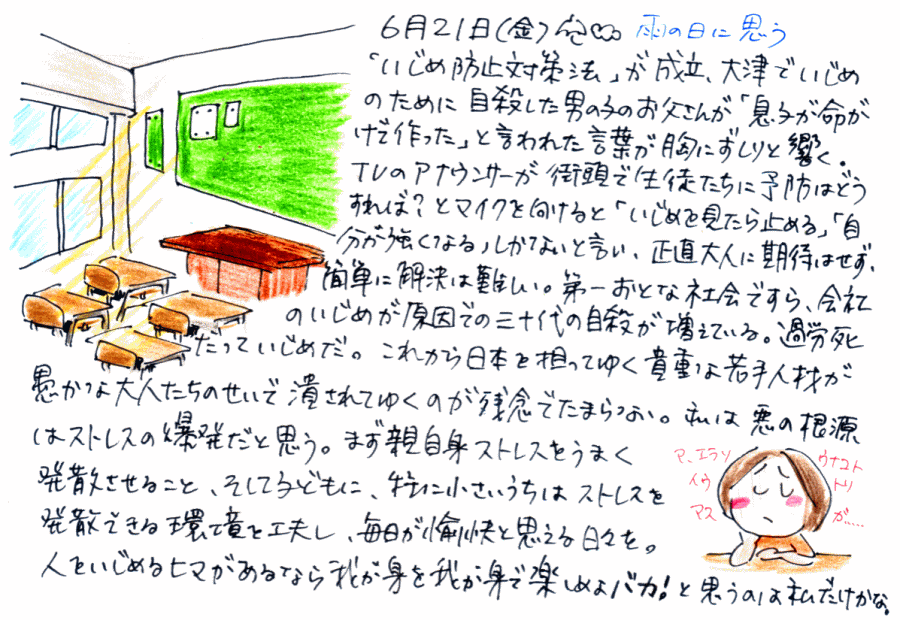 6月21日(金) 雨の日に思う
「いじめ防止対策法」が成立、大津でいじめ
のために自殺した男の子のお父さんが「息子が命が
けで作った」と言われた言葉が胸にずしりと響く。
TVのアナウンサーが街頭で生徒たちに予防はどう
すれば?とマイクを向けると「いじめを見たら止める」「自
分が強くなる」しかないと言い、正直大人に期待はせず、
簡単に解決は難しい。第一おとな社会ですら、会社
のいじめが原因での三十代の自殺が増えている。過労死
だっていじめだ。これから日本を担ってゆく貴重な若手人材が
愚かな大人たちのせいで潰されてゆくのが残念でたまらない。私は悪の根源
はストレスの爆発だと思う。まず親自身ストレスをうまく
発散させること、そして子どもに、特に小さいうちはストレスを
発散できる環境を工夫し、毎日が愉快と思える日々を。
人をいじめるヒマがあるなら我が身を我が身で楽しめよバカ!と思うのは私だけかな。
ア、エラソ
イウ
マス
ウナコト
トリ
が……